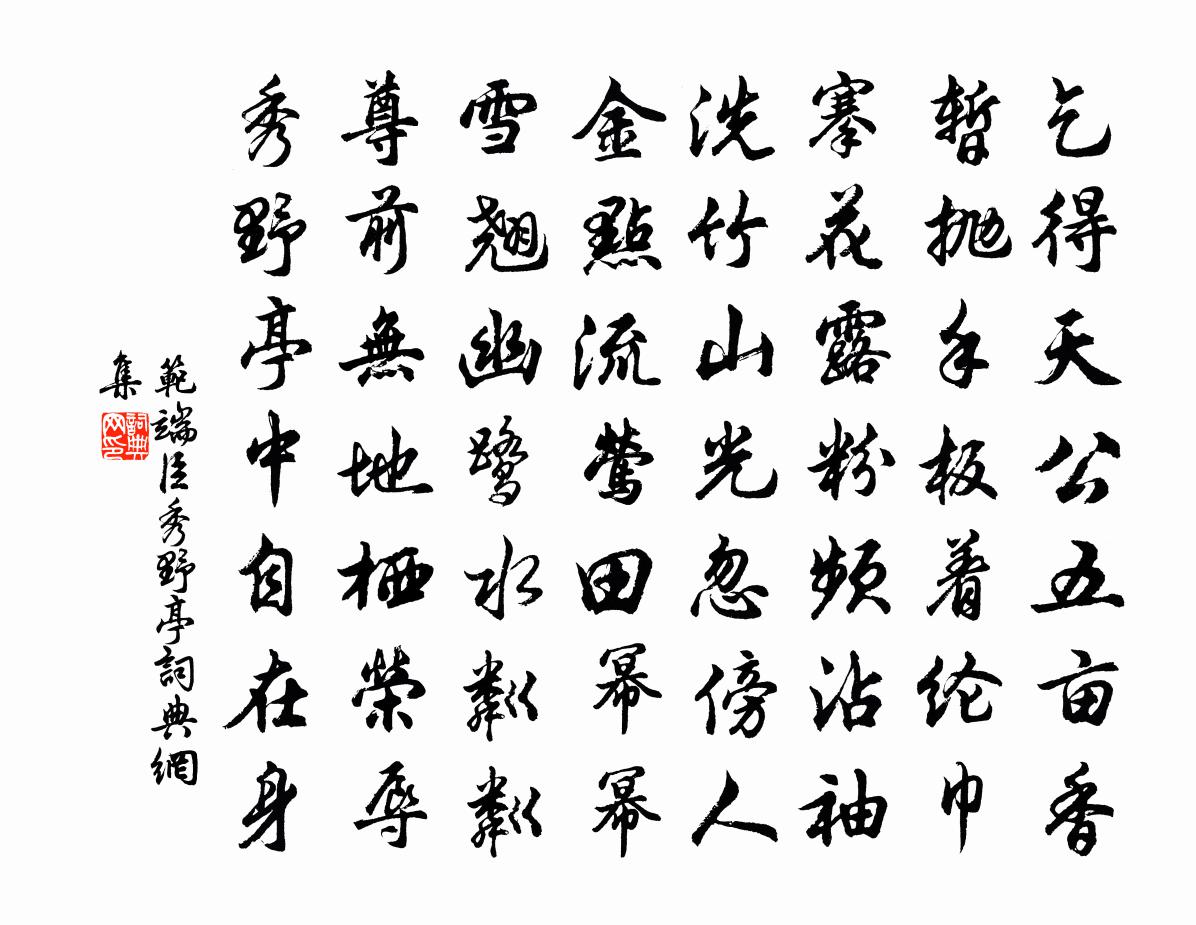 乞得天公五亩香
暫抛手板着纶巾
搴花露粉频沾袖
洗竹山光忽傍人
金點流鶯田幂幂
雪翹幽鷺水粼粼
尊前無地栖榮辱
秀野亭中自在身
範端臣秀野亭詞典網
集
詞典网印